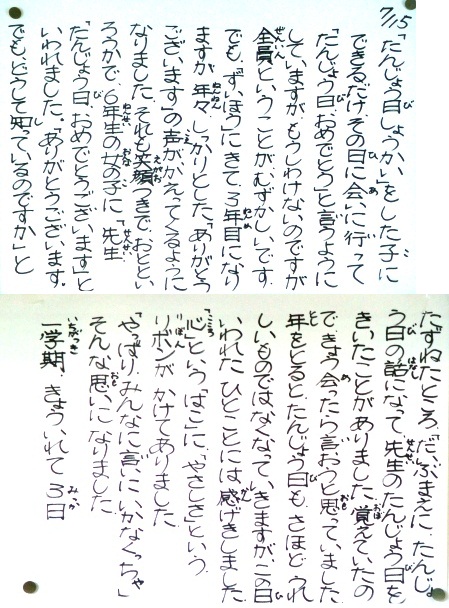 7/15
「たんじょう日しょうかい」をした子に
できるだけその日に会いに行って
「たんじょう日、おめでとう」と言うように
していますが、もうしわけないのですが
全員ということが、むずかしいです。
でも、ずいぶうにきて、3年目になり
ますが、年々、しっかりとした「ありがとう
ございます」の声がかえってくるように
なりました。それも笑顔つきで。おととい
ろうかで、6年生の女の子に「先生、
たんじょう日、おめでとうございます」と
いわれました。「ありがとうございます。
でも、どうして知っているのですか」と
たずねたところ、「だいぶまえに、たんじょ
う日の話になって、先生のたんじょう日を
きいたことがありました。覚えていたの
できょう会ったら言おうと思っていました。
年をとると、たんじょう日も、さほど、うれ
しいものではなくなっていきますが、この日
いわれたひとことには、感げきしました。
「心」というはこに、「やさしさ」という
リボンが、かけてありました。
「やっぱり、みんなに言いにいかなくっちゃ」
そんな思いになりました。
一学期、きょういれて3日